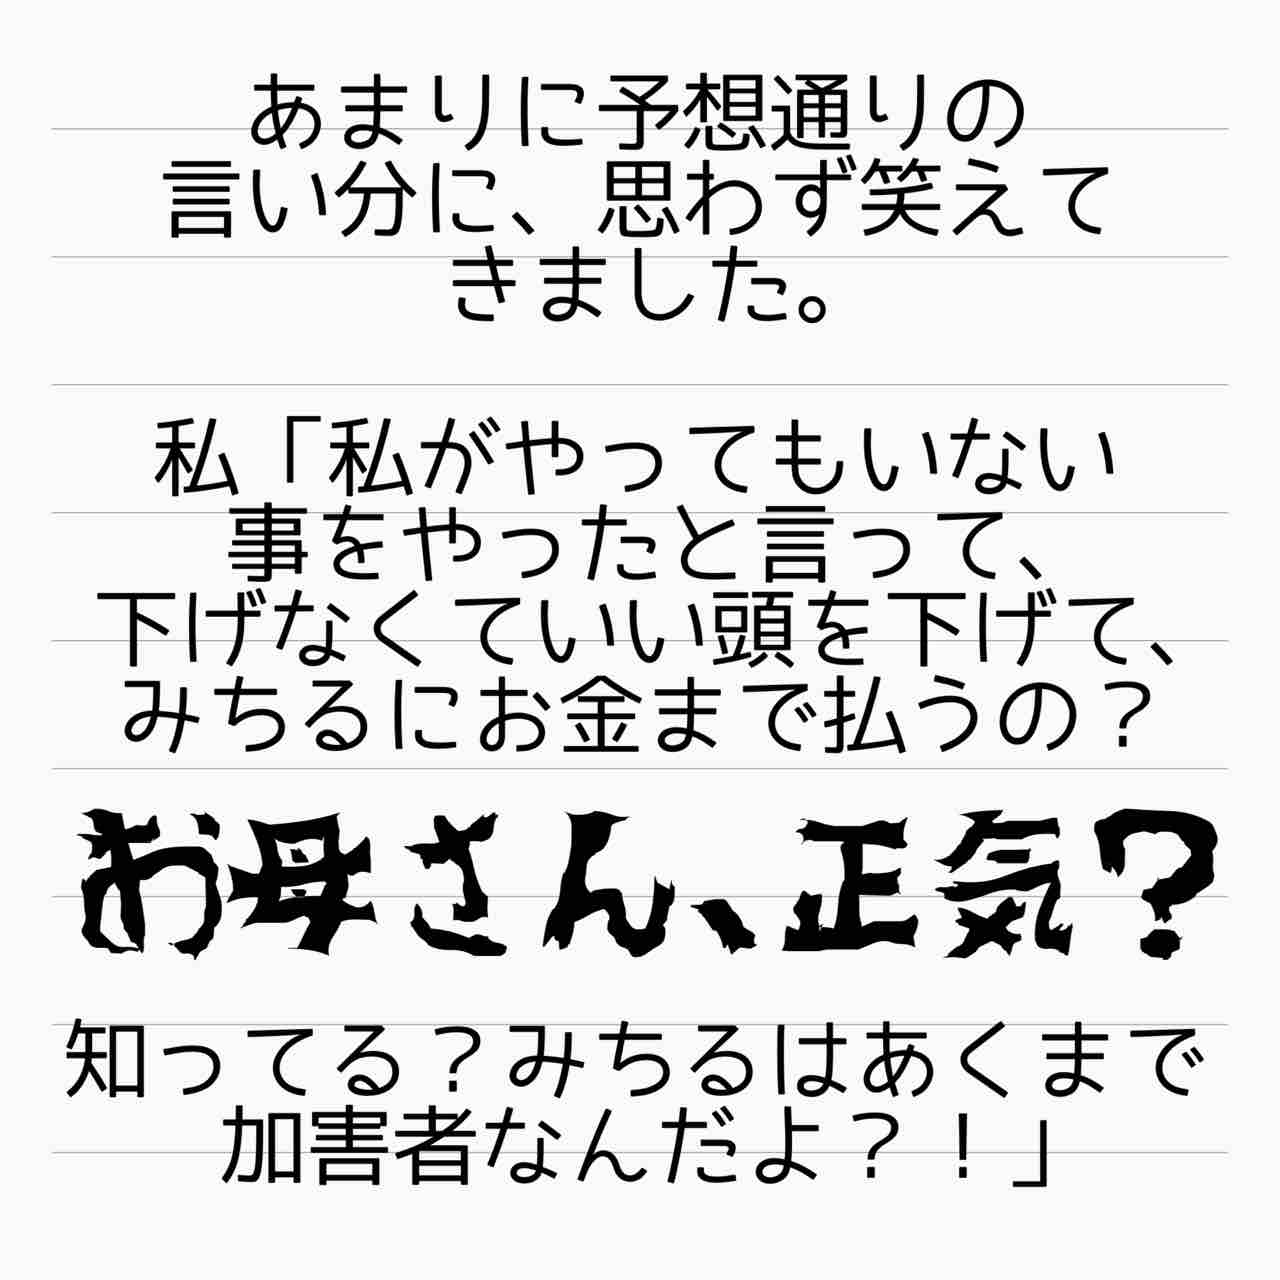 あまりに予想通りの
言い分に、思わず笑えて
きました。
私「私がやってもいない
事をやったと言って、
下げなくていい頭を下げて、
みちるにお金まで払うの？
お母さん、正気？
知ってる？みちるはあくまで
加害者なんだよ？！」